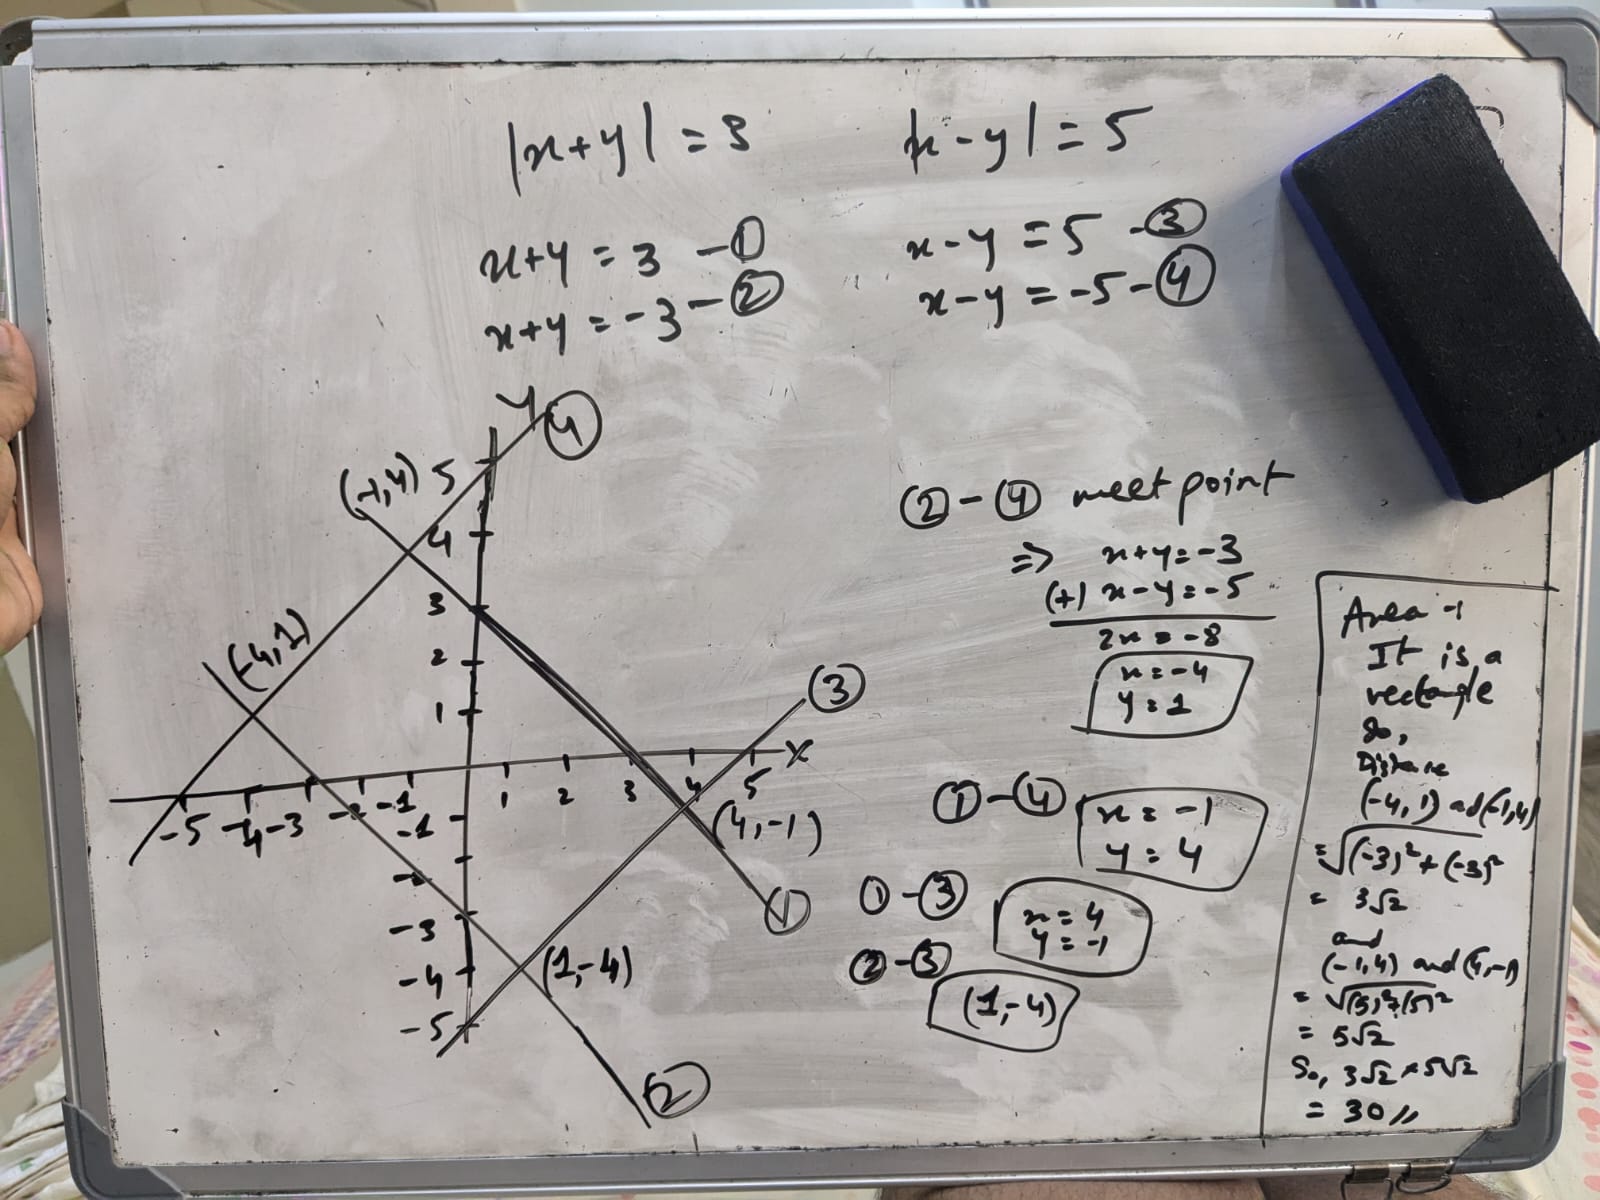 |x+y| = 3
|x-y| = 5
x+y = 3 -①
x+y = -3 -②
x-y = 5 -③
x-y = -5 -④
y
④
(-1,4)
5
4
3
2
1
(-4,1)
③
x
-5 -4 -3 -2 -1
1 2 3 4 5
-1
(4,-1)
-3
-4
-5
(1,-4)
①
②
②-④ meet point
=> x+y=-3
(+) x-y=-5
2x=-8
x=-4
y=1
①-④
x=-1
y=4
①-③
x=4
y=-1
②-③
(1,-4)
Area -1
It is a
rectangle
So,
Distance
(-4,1) ad (-1,4)
=√(-3)²+(-3)²
= 3√2
and
(-1,4) and (4,-1)
= √(5)²+(5)²
= 5√2
So, 3√2 × 5√2
= 30//